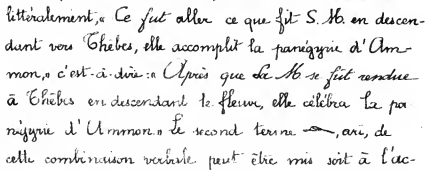 littéralement, « Ce fut aller ce que fit S. M. en descen-
dant vers Thèbes, elle accomplit la panégyrie d'Am-
mon, » c'est-à-dire : « Après que Sa M se fût rendue
à Thèbes en descendant le fleuve, elle célébra la pa
négyrie d'Ammon. » Le second terme , ari, de
cette combinaison verbale peut être mis soit à l'ac-